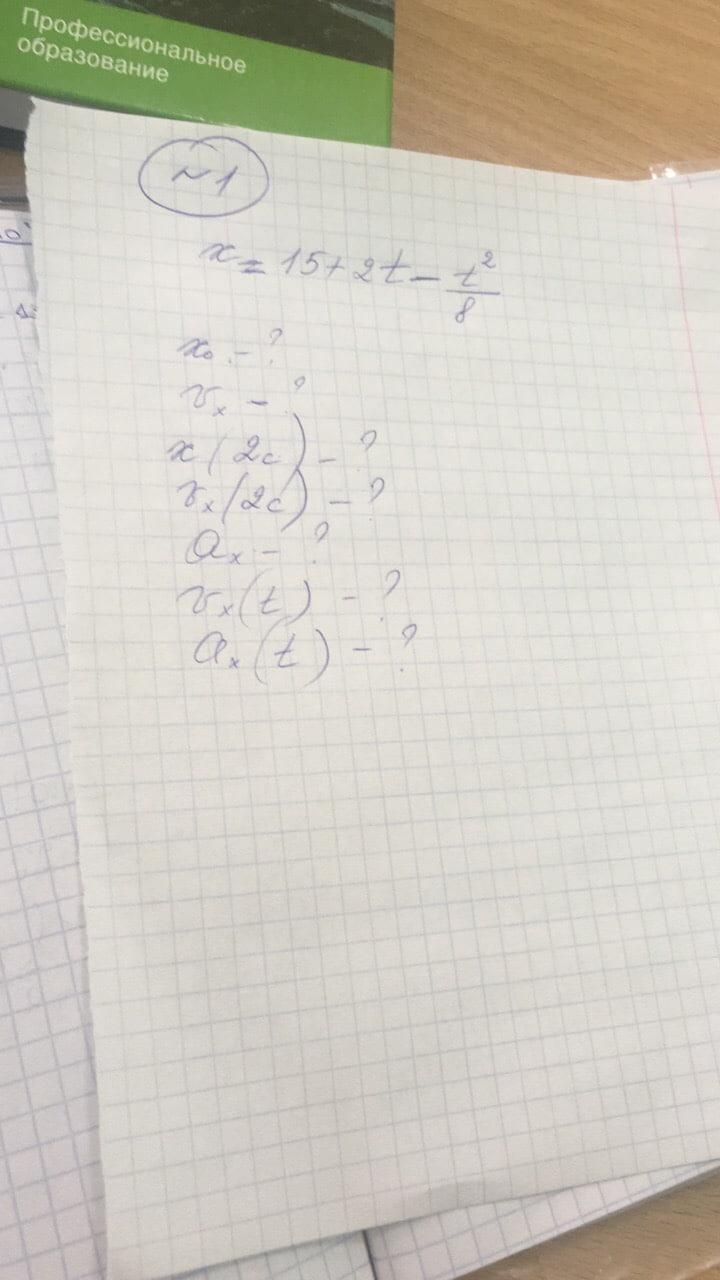 Профессиональное
образование
~1
x = 15 + 2t - t²/8
x₀ - ?
vₓ - ?
x(2c) - ?
vₓ(2c) - ?
aₓ - ?
vₓ(t) - ?
aₓ(t) - ?